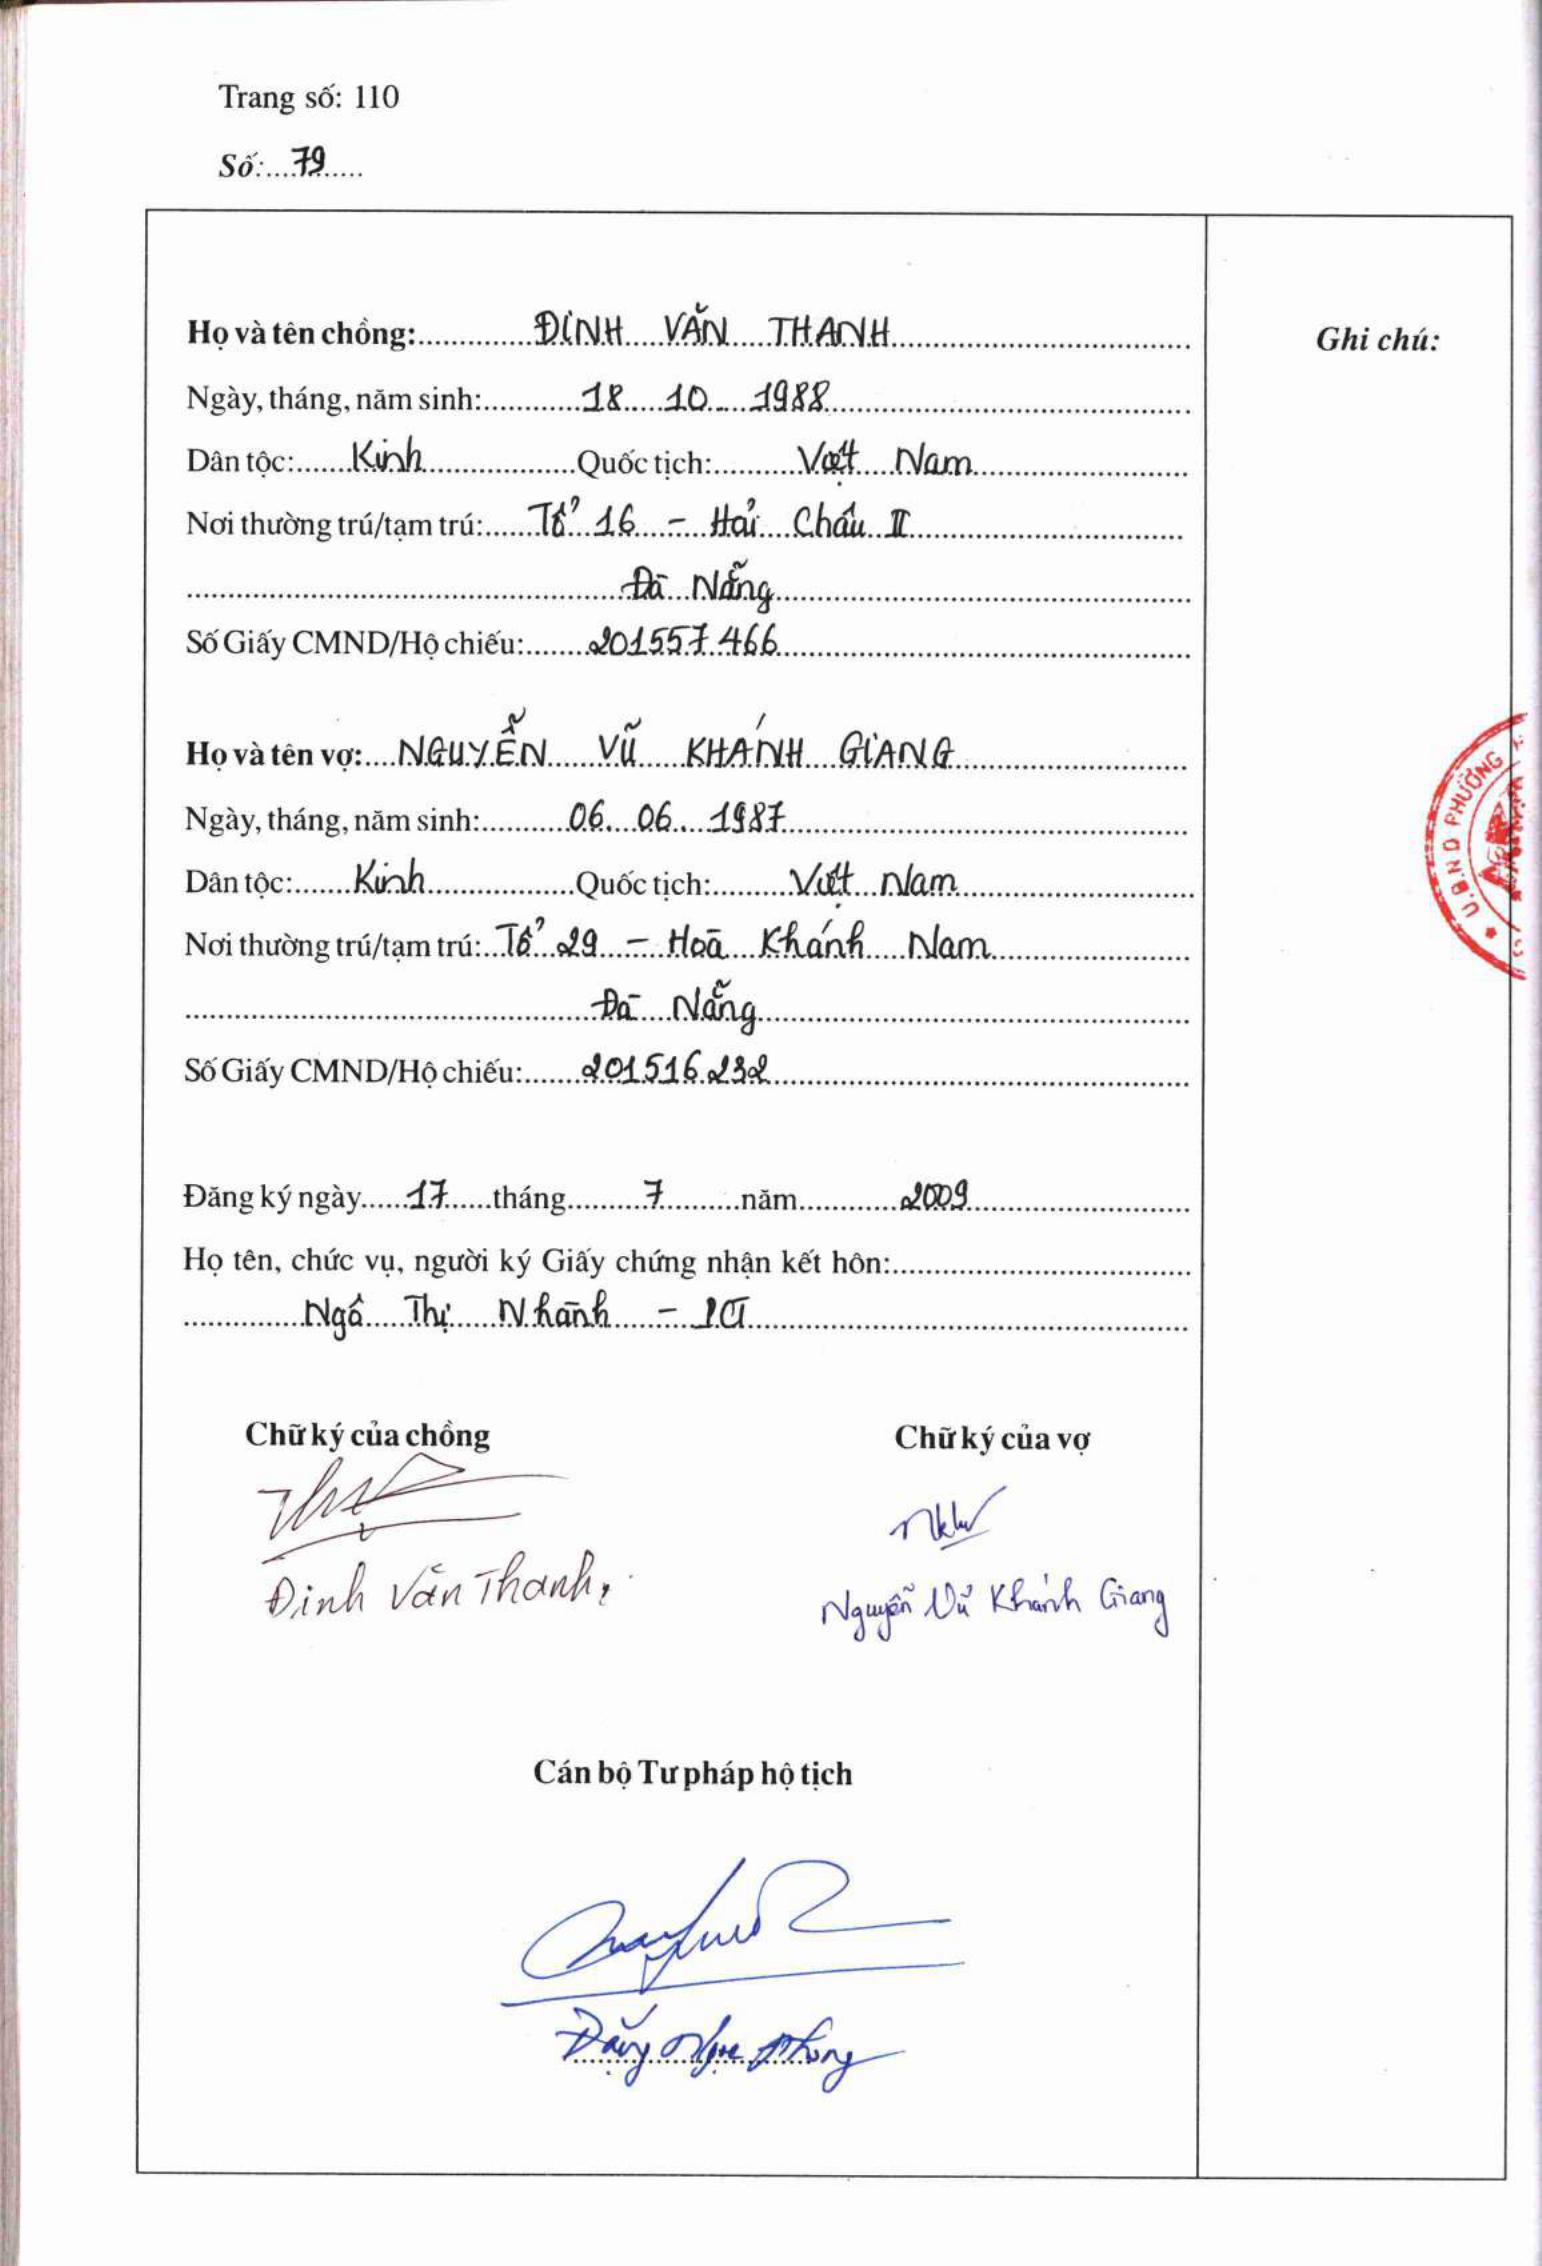 Trang số: 110
Số: 79
Họ và tên chồng: ĐINH VĂN THANH
Ghi chú:
Ngày, tháng, năm sinh: 18 10 1988
Dân tộc: Kinh Quốc tịch: Việt Nam
Nơi thường trú/tạm trú: Tổ 16 - Hải Châu II
Đà Nẵng
Số Giấy CMND/Hộ chiếu: 201557466
Họ và tên vợ: NGUYỄN VŨ KHÁNH GIANG
Ngày, tháng, năm sinh: 06 06 1987
Dân tộc: Kinh Quốc tịch: Việt Nam
Nơi thường trú/tạm trú: Tổ 29 - Hoà Khánh Nam
Đà Nẵng
Số Giấy CMND/Hộ chiếu: 201516232
U.B.N.D PHƯỜNG
Đăng ký ngày 17 tháng 7 năm 2009
Họ tên, chức vụ, người ký Giấy chứng nhận kết hôn:
Ngô Thị Nhành -
Chữ ký của chồng
Chữ ký của vợ
Đinh Văn Thanh
Nguyễn Vũ Khánh Giang
Cán bộ Tư pháp hộ tịch
Đặng Ngọc Phong